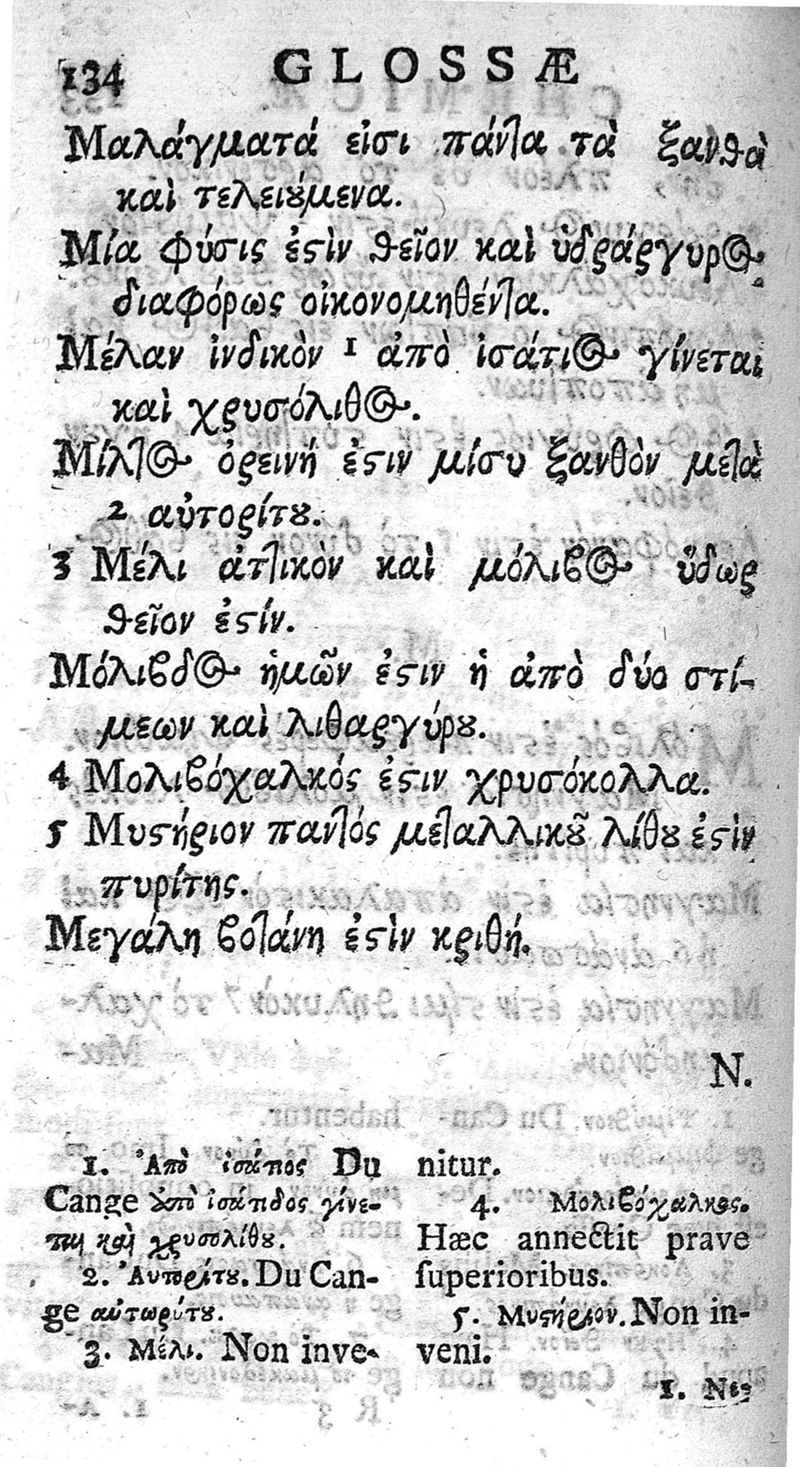 134 GLOSSÆ
Μαλάγματά εἰσι πάντα τὰ ξανθὰ
καὶ τελειȣ́μενα.
Μία φύσις ἐϛὶν θεῖον καὶ ὑδράργυρος
διαφόρως οἰκονομηθέντα.
Μέλαν ἰνδικὸν 1 ἀπὸ ἰσάτιος γίνεται
καὶ χρυσόλιθος.
Μίλτος ὀρεινή ἐϛιν μίσυ ξανθὸν μετὰ
2 αὐτορίτȣ.
3 Μέλι ἀττικὸν καὶ μόλιβος ὕδωρ
θεῖον ἐϛίν.
Μόλιβδος ἡμῶν ἐϛιν ἡ ἀπὸ δύο στί-
μεων καὶ λιθαργύρȣ.
4 Μολιβόχαλκός ἐϛιν χρυσόκολλα.
5 Μυϛήριον παντός μεταλλικȣ͂ λίθȣ ἐϛὶν
πυρίτης.
Μεγάλη βοτάνη ἐϛὶν κριθή.
N.
1. Ἀπὸ ἰσάτιος Du
Cange ἀπὸ ἰσάτιδος γίνε-
ται καὶ χρυσολίθȣ.
2. Ἀυτορίτȣ. Du Can-
ge αὐτωρύτȣ.
3. Μέλι. Non inve-
nitur.
4. Μολιβόχαλκος.
Hæc annectit prave
ſuperioribus.
5. Μυϛήριον. Non in-
veni.